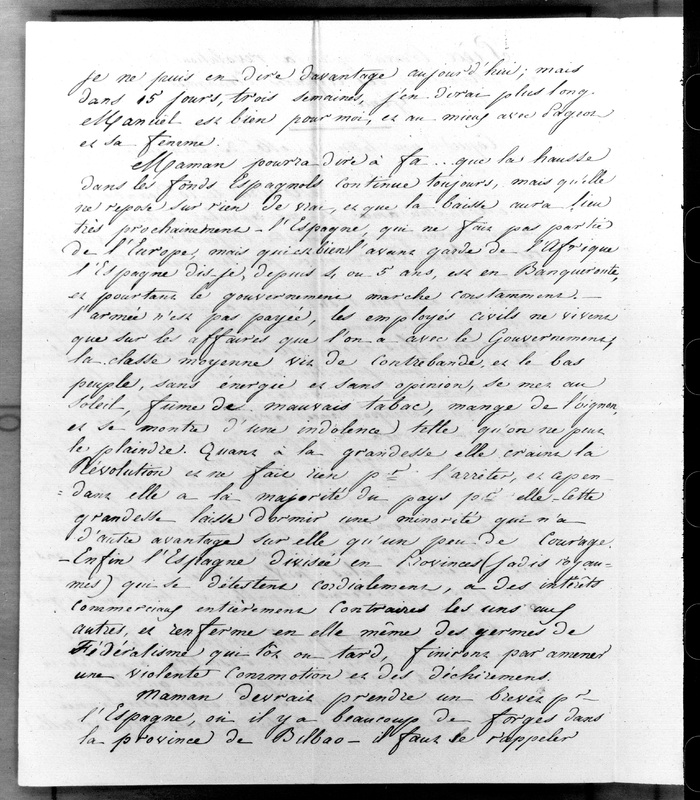 Je ne puis en dire davantage aujourd'hui; mais
dans 15 jours, trois semaines, j'en dirai plus long.
Manuel est bien pour moi, et au mieux avec Pageot
et sa femme.
Maman pourra dire à fa... que la hausse
dans les fonds Espagnols continue toujours, mais qu'elle
ne repose sur rien de vrai, et que la baisse aura lieu
très prochainement - l'Espagne, qui ne fait pas partie
de l'Europe, mais qui est bien l'avant garde de l'Afrique
l'Espagne dis-je, depuis 4, ou 5 ans, est en Banqueroute,
et pourtant le gouvernement marche constamment. -
l'armée n'est pas payée, les employés civils ne vivent
que sur les affaires que l'on a avec le Gouvernement,
la classe moyenne vit de contrebande, et le bas
peuple, sans énergie et sans opinion, se met au
soleil, fume de mauvais tabac, mange de l'oignon,
et se montre d'une indolence telle qu'on ne peut
le plaindre. Quant à la grandesse elle craint la
Révolution et ne fait rien pr l'arrêter, et cepen-
= dant elle a la majorité du pays pr elle - Cette
grandesse laisse dormir une minorité qui n'a
d'autre avantage sur elle qu'un peu de Courage.
- Enfin l'Espagne divisée en Provinces (jadis royau-
mes) qui se détestent cordialement, a des intérêts
commerciaux entièrement Contraires les uns aux
autres, et renferme en elle même des germes de
Fédéralisme qui tôt ou tard, finiront par amener
une violente Commotion et des déchiremens.
Maman devrait prendre un brevet pr
l'Espagne, où il y a beaucoup de forges dans
la province de Bilbao - il faut se rappeler